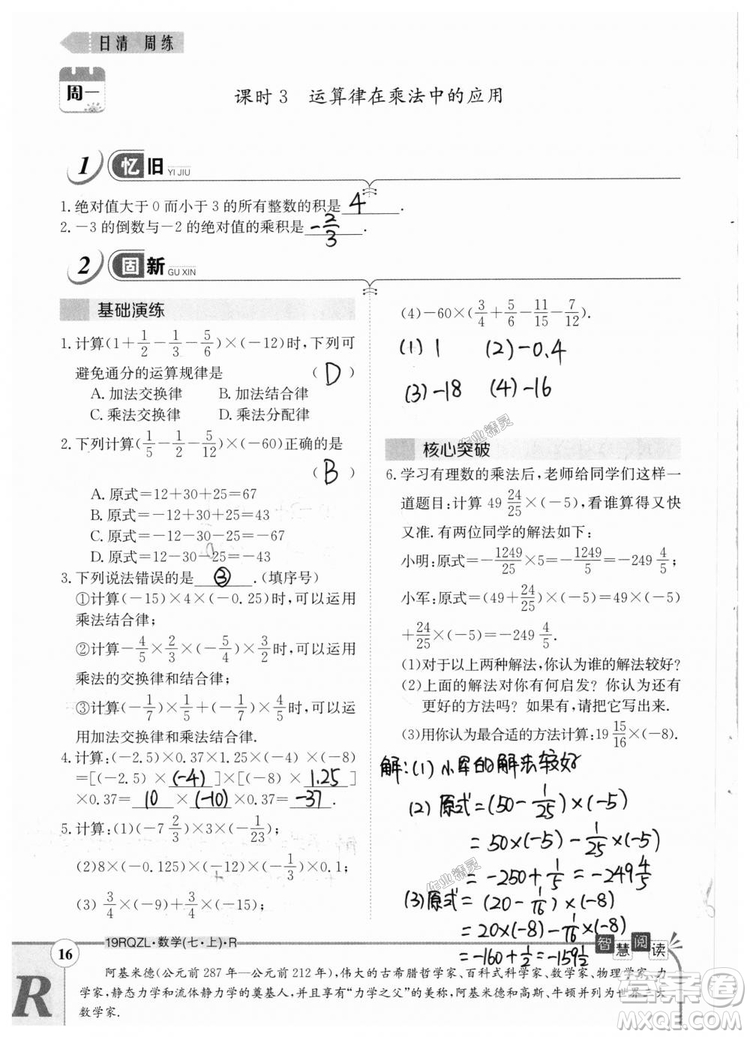 日清 周练
周一
课时3 运算律在乘法中的应用
1 忆旧 YI JIU
1.绝对值大于0而小于3的所有整数的积是 4 .
2.－3的倒数与－2的绝对值的乘积是 －2/3 .
2 固新 GU XIN
基础演练
1.计算(1＋1/2－1/3－5/6)×(－12)时,下列可
避免通分的运算规律是 ( D )
A.加法交换律 B.加法结合律
C.乘法交换律 D.乘法分配律
2.下列计算(1/5－1/2－5/12)×(－60)正确的是
( B )
A.原式＝12＋30＋25＝67
B.原式＝－12＋30＋25＝43
C.原式＝12－30＋25＝7
D.原式＝12－30－25＝－43
3.下列说法错误的是 ③ .(填序号)
①计算(－15)×4×(－0.25)时,可以运用
乘法结合律;
②计算－4/5×2/3×(－4/5)×(－2/3)时,可以运用
乘法的交换律和结合律;
③计算(－1/7)×(－1/7)×(－1/7)×(－4/7)时,可以
运用加法交换律和乘法结合律.
4.计算:(－2.5)×0.37×1.25×(－4)×(－8)
＝[(－2.5)× (-4) ]×[(－8)× 1.25 ]
×0.37＝ 10 × (-10) ×0.37＝ -3.7 .
5.计算:(1)(－7 2/3)×3×(－1/23);
(2)8×(－0.125)×(－12)×(－1/3)×0.1;
(3)3/4×(－9)－3/4×(＋15);
(4)－60×(3/4＋5/6－11/15－7/12).
(1) 1 (2) -0.4
(3) -18 (4) -16
核心突破
6.学习有理数的乘法后,老师给同学们这样一
道题目:计算49 24/25×(－5),看谁算得又快
又准.有两位同学的解法如下:
小明:原式＝－1249/25×5＝－1249/5＝－249 4/5;
小军:原式＝(49＋24/25)×(－5)＝49×(－5)
＋24/25×(－5)＝－249 4/5.
(1)对于以上两种解法,你认为谁的解法较好?
(2)上面的解法对你有何启发?你认为还有
更好的方法吗?请把它写出来.
(3)用你认为最合适的方法计算:19 15/16×(－8).
解:(1) 小军的解法较好
(2) 原式=(50-1/25)×(-5)
=50×(-5)-1/25×(-5)
=-250+1/5=-249 4/5
(3) 原式=(20-1/16)×(-8)
=20×(-8)-1/16×(-8)
=-160+1/2=-159 1/2
智慧阅读
16 19RQZL·数学(七·上)·R
R
阿基米德(公元前287年—公元前212年),伟大的古希腊哲学家、百科式科学家、数学家、物理学家、力
学家,静态力学和流体静力学的奠基人,并且享有“力学之父”的美称,阿基米德和高斯、牛顿并列为世界三大
数学家.